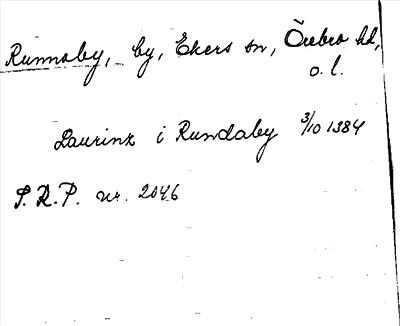 Runnaby, by, Ekers sn, Örebro hd,
o. l.
Laurinz i Rundaby 3/10 1384
S. R. P. nr. 2046